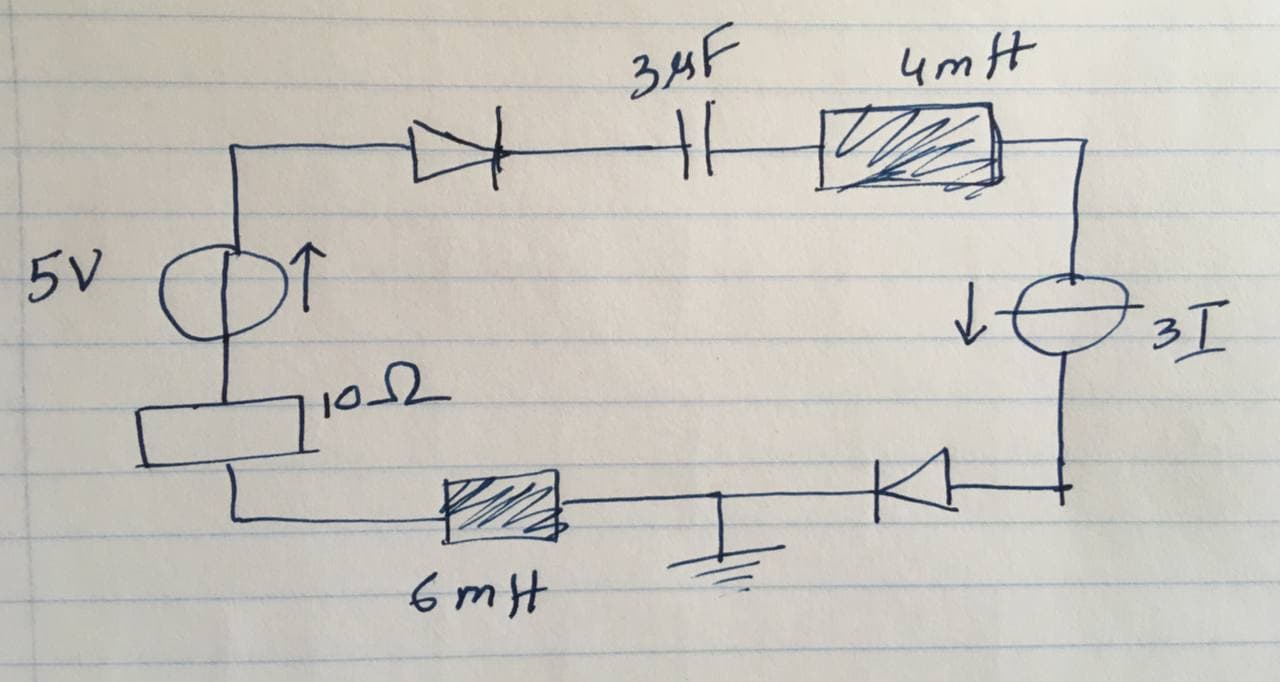 3μF
4mH
5V
3I
10Ω
6mH